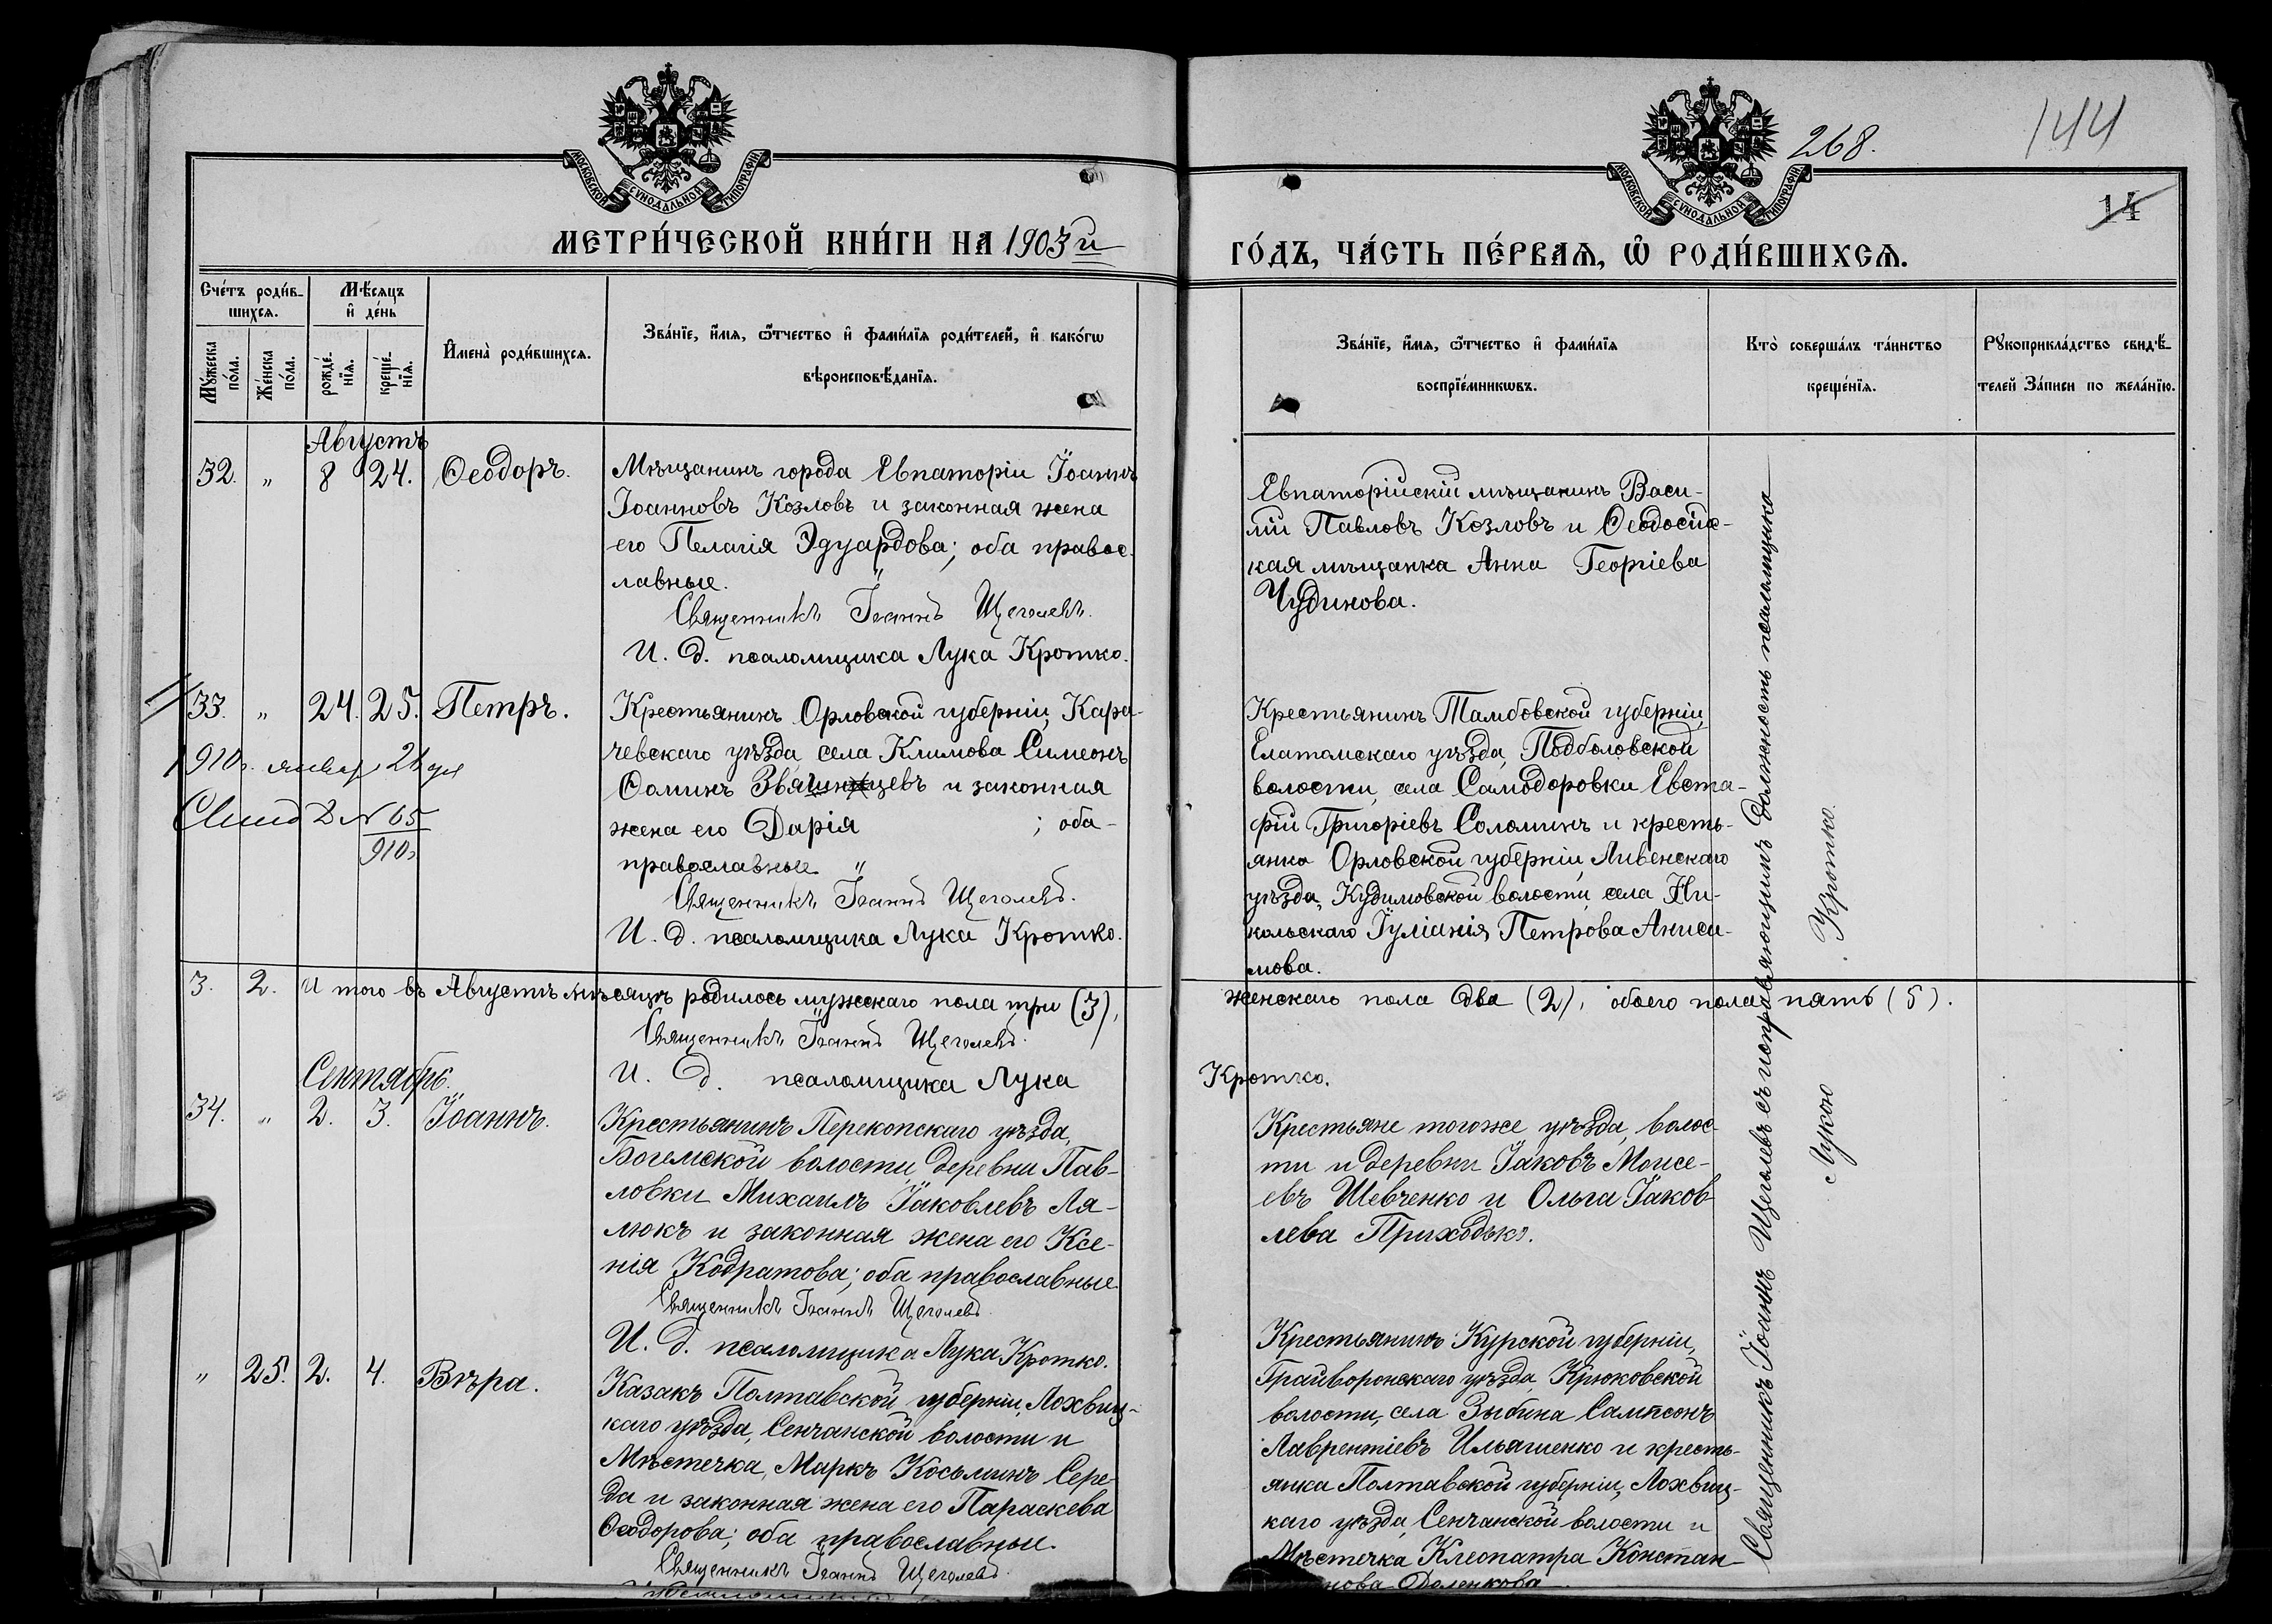 МОСКОВСКОЙ СѴНОДАЛЬНОЙ ТИПОГРАФІИ
МЕТРИ́ЧЕСКОЙ КНИ́ГИ НА 1903 й
Сче́тъ роди́в-
шихся.
Мѣ́сяцъ
и҆ де́нь
Мꙋ́жеска
по́ла.
Же́нска
по́ла.
рожде́-
нїя.
креще́-
нїя.
И҆мена̀ роди́вшихся.
Зва́нїе, и҆́мя, ѻ҆́тчество и҆ фами́лїя роди́телей, и҆ како́гѡ
вѣроисповѣ́данїя.
Августъ
32. " 8 24. Ѳеодоръ.
Мѣщанинъ города Евпаторіи Іоаннъ
Іоанновъ Козловъ и законная жена
его Пелагія Эдуардова; оба правос-
лавные.
Священникъ Іоаннъ Щеголевъ.
И. д. псаломщика Лука Кротко.
33. " 24. 25. Петръ.
1910 г. январ 21 дня
№ 65
910 г
Крестьянинъ Орловской губерніи, Кара-
чевскаго уѣзда, села Климова Симеонъ
Ѳоминъ и законная
жена его Дарія ; оба-
православные "
Священникъ Іоаннъ Щеголевъ.
И. д. псаломщика Лука Кротко.
3. 2. И того въ Августѣ мѣсяцѣ родилось мужскаго пола три (3),
Священникъ Іоаннъ Щеголевъ.
И. д. псаломщика Лука
Сентябрь.
34. " 2. 3. Іоаннъ.
Крестьянинъ Перекопскаго уѣзда,
Богемской волости, деревни Пав-
ловки Михаилъ Іаковлевъ Ля-
люкъ и законная жена его Ксе-
нія Кодратова; оба православные.
Священникъ Іоаннъ Щеголевъ.
И. д. псаломщика Лука Кротко.
" 25. 2. 4. Вѣра.
Казакъ Полтавской губерніи, Лохвиц-
каго уѣзда, Сенчанской волости и
Мѣстечка, Маркъ Косьминъ Сере-
да и законная жена его Параскева
Ѳеодорова; оба православные.
Священникъ Іоаннъ Щеголевъ.
МОСКОВСКОЙ СѴНОДАЛЬНОЙ ТИПОГРАФІИ
268.
144
14
ГО́ДЪ, ЧА́СТЬ ПЕ́РВАЯ, Ѽ РОДИ́ВШИХСЯ.
Зва́нїе, и҆́мя, ѻ҆́тчество и҆ фами́лїя
воспрїе́мникѡвъ.
Кто̀ соверша́лъ та́инство
креще́нїя.
Рꙋкоприкла́дство свидѣ́-
телей За́писи по жела́нїю.
Евпаторійскій мѣщанинъ Васи-
лій Павловъ Козловъ и Ѳеодосійс-
кая мѣщанка Анна Георгіева
Чудинова.
Крестьянинъ Тамбовской губерніи,
Елатомскаго уѣзда, Подболовской
волости, села Самодоровки Евста-
фій Григоріевъ Соломинъ и кресть-
янка Орловской губерніи, Ливенскаго
уѣзда, Кудиновской волости, села Ни-
кольскаго Іуліанія Петрова Аниси-
мова.
женскаго пола два (2), обоего пола пять (5).
Кротко.
Крестьяне тогоже уѣзда, волос-
ти и деревни Іаковъ Моисе-
евъ Шевченко и Ольга Іаков-
лева Приходько.
Крестьянинъ Курской губерніи,
Грайворонскаго уѣзда, Крюковской
волости, села Зыбина Сампсонъ
Лаврентіевъ Ильяшенко и кресть-
янка Полтавской губерніи, Лохвиц-
каго уѣзда, Сенчанской волости и
Мѣстечка Клеопатра Констан-
нова Доленкова
Священникъ Іоаннъ Щеголевъ съ исправляющимъ должность псаломщика
Лукою Кротко.